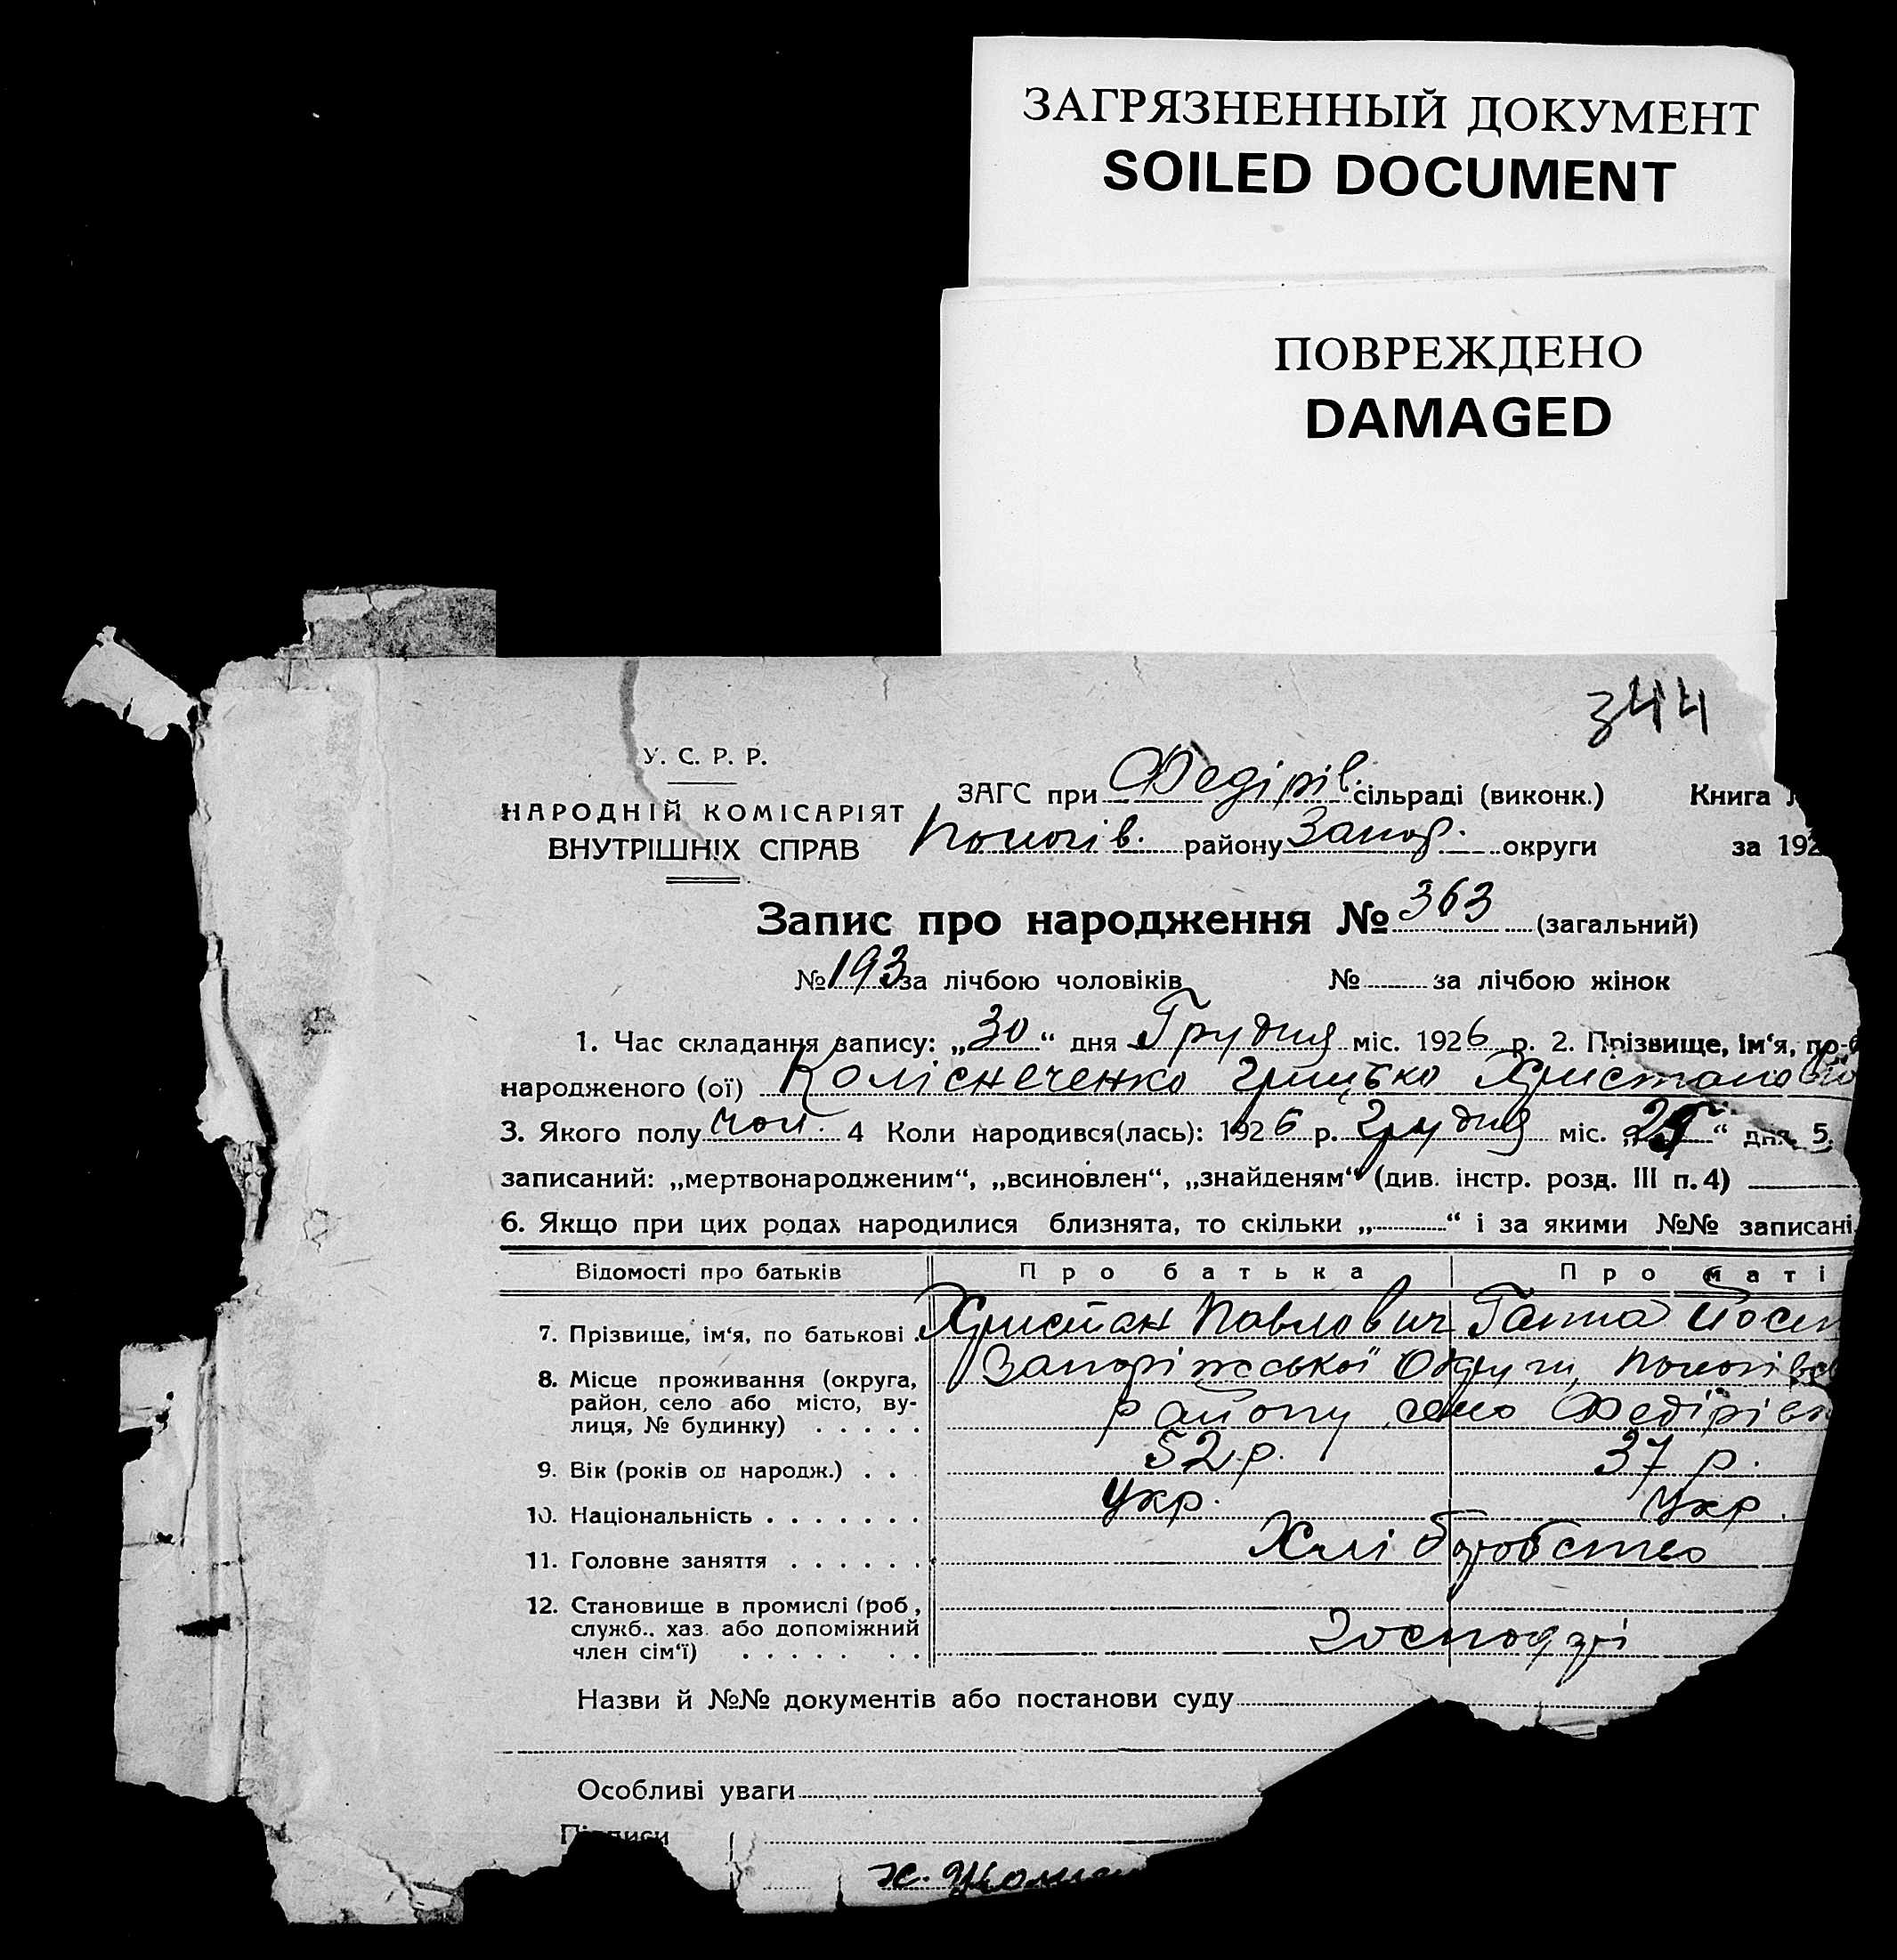 ЗАГРЯЗНЕННЫЙ ДОКУМЕНТ
SOILED DOCUMENT
ПОВРЕЖДЕНО
DAMAGED
344
У. С. Р. Р.
НАРОДНІЙ КОМІСАРІЯТ
ВНУТРІШНІХ СПРАВ
ЗАГС при Федірів. сільраді (виконк.) Книга
Пологів. району Запор. округи за 192
Запис про народження № 363 (загальний)
№ 193 за лічбою чоловіків № за лічбою жінок
1. Час складання запису: „30“ дня Грудня міс. 1926 р. 2. Прізвище, ім‘я, по-б
народженого (ої) Колісниченко Грицько Христанов
3. Якого полу чол. 4 Коли народився(лась): 1926 р. Грудня міс. „ “ дня. 5.
записаний: „мертвонародженим“, „всиновлен“, „знайденям“ (див. інстр. розд. III п. 4)
6. Якщо при цих родах народилися близнята, то скільки „ “ і за якими №№ записані
Відомості про батьків Про батька Про маті
7. Прізвище, ім‘я, по батькові Христан Павлович Ганна Йосип
8. Місце проживання (округа, Запоріжської Округи, Пологівс
район, село або місто, ву- району село Федірівк
лиця, № будинку)
9. Вік (років од народж.) 52 р. 37 р.
10. Національність укр. укр.
11. Головне заняття Хліборобство
12. Становище в промислі (роб,
служб., хаз. або допоміжний
член сім‘ї) Господарі
Назви й №№ документів або постанови суду
Особливі уваги
Підписи